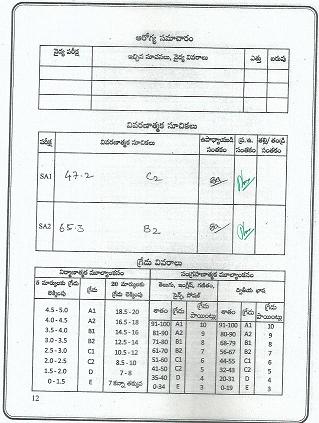 ఆరోగ్య సమాచారం
వైద్య పరీక్ష ఇచ్చిన సూచనలు, వైద్య వివరాలు ఎత్తు బరువు
వివరణాత్మక సూచికలు
పరీక్ష వివరణాత్మక సూచికలు ఉపాధ్యాయుడి సంతకం ప్ర.ఉ. సంతకం తల్లి/తండ్రి సంతకం
SA1 47.2 C2
SA2 65.3 B2
గ్రేడు వివరాలు
నిర్మాణాత్మక మూల్యాంకనం సంగ్రహణాత్మక మూల్యాంకనం
5 మార్కులకు లెక్కింపు గ్రేడు 20 మార్కులకు లెక్కింపు తెలుగు, ఇంగ్లీష్, గణితం, సైన్స్, సోషల్ ద్వితీయ భాష
శాతం గ్రేడు గ్రేడు పాయింట్లు శాతం గ్రేడు గ్రేడు పాయింట్లు
4.5 - 5.0 A1 18.5 - 20 91-100 A1 10 91-100 A1 10
4.0 - 4.5 A2 16.5 - 18 81-90 A2 9 80-90 A2 9
3.5 - 4.0 B1 14.5 - 16 71-80 B1 8 68-79 B1 8
3.0 - 3.5 B2 12.5 - 14 61-70 B2 7 56-67 B2 7
2.5 - 3.0 C1 10.5 - 12 51-60 C1 6 44-55 C1 6
2.0 - 2.5 C2 8.5 - 10 41-50 C2 5 32-43 C2 5
1.5 - 2.0 D 7 - 8 35-40 D 4 20-31 D 4
0 - 1.5 E 7 కన్నా తక్కువ 0-34 E 3 0-19 E 3
12